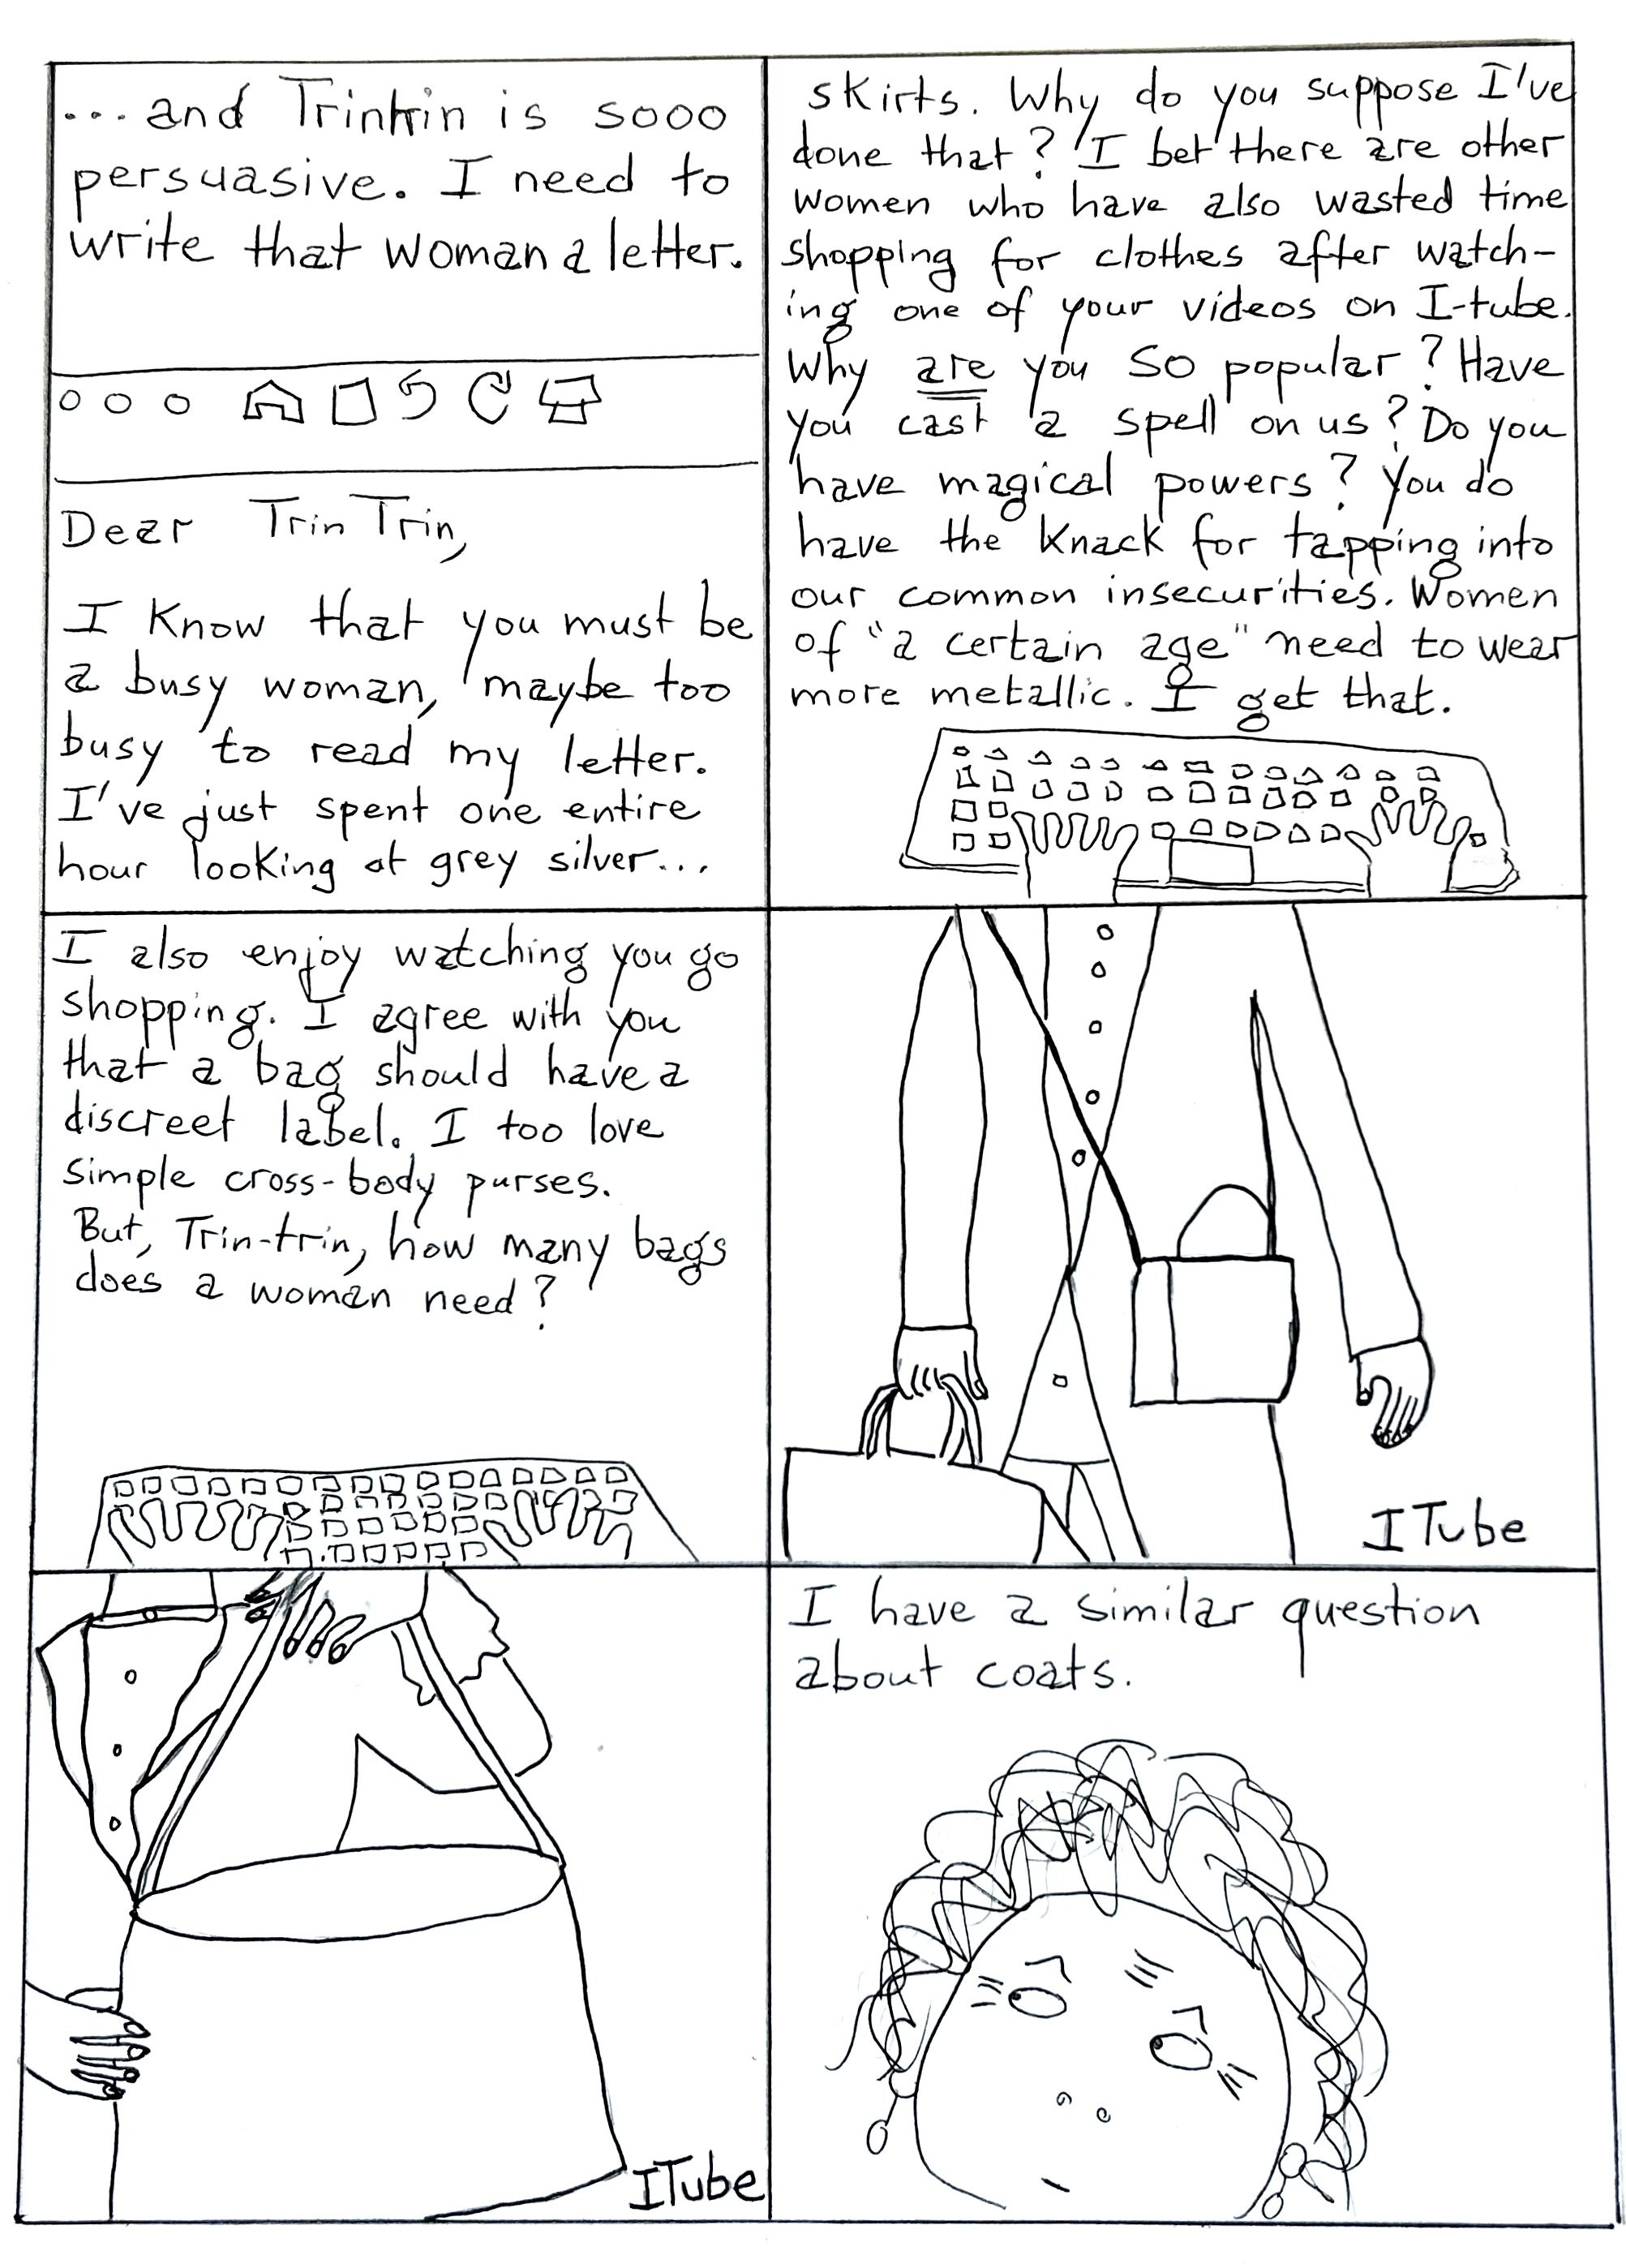 ...and Trintrin is sooo
persuasive. I need to
write that woman a letter.
Dear TrinTrin,
I know that you must be
a busy woman, maybe too
busy to read my letter.
I've just spent one entire
hour looking at grey silver...
skirts. Why do you suppose I've
done that? I bet there are other
women who have also wasted time
shopping for clothes after watch-
ing one of your videos on I-tube.
Why are you so popular? Have
you cast a spell on us? Do you
have magical powers? You do
have the knack for tapping into
our common insecurities. Women
of "a certain age" need to wear
more metallic. I get that.
I also enjoy watching you go
shopping. I agree with you
that a bag should have a
discreet label. I too love
simple cross-body purses.
But, Trin-trin, how many bags
does a woman need?
ITube
ITube
I have a similar question
about coats.